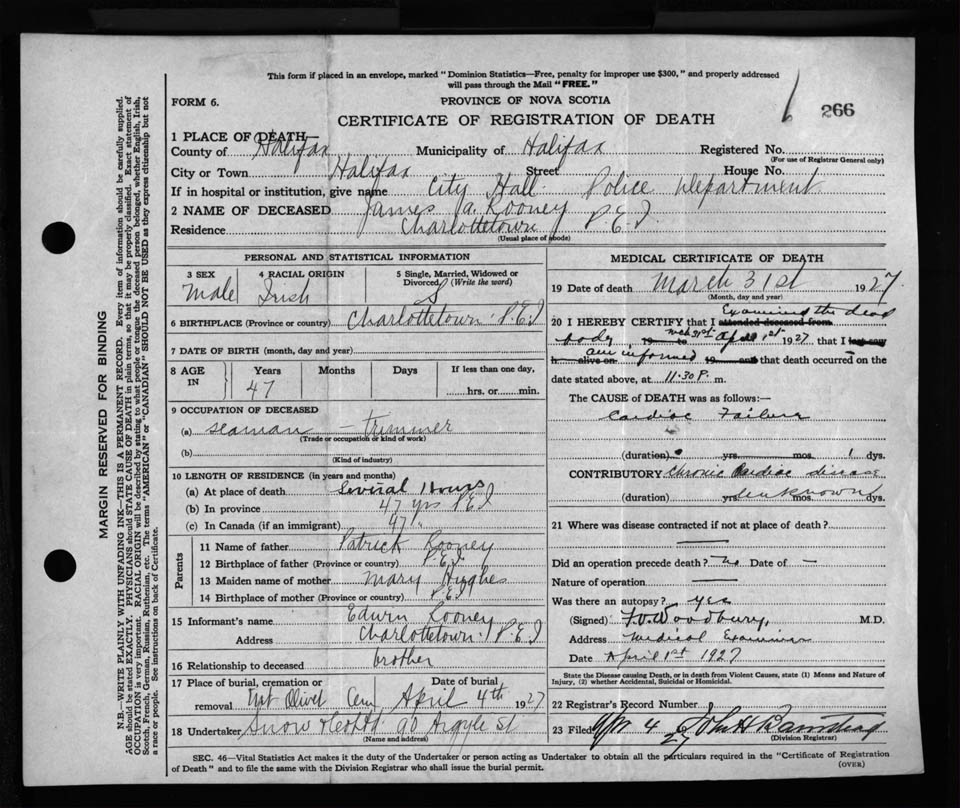 This form if placed in an envelope, marked "Dominion Statistics—Free, penalty for improper use $300," and properly addressed
will pass through the Mail "FREE."
FORM 6.
PROVINCE OF NOVA SCOTIA
266
CERTIFICATE OF REGISTRATION OF DEATH
1 PLACE OF DEATH—
County of Halifax Municipality of Halifax Registered No.
(For use of Registrar General only)
City or Town Halifax Street House No.
If in hospital or institution, give name City Hall Police Department
2 NAME OF DECEASED James A. Rooney
Residence Charlottetown P.E.I
(Usual place of abode)
PERSONAL AND STATISTICAL INFORMATION
3 SEX 4 RACIAL ORIGIN 5 Single, Married, Widowed or
Divorced (Write the word)
Male Irish S
6 BIRTHPLACE (Province or country) Charlottetown P.E.I
7 DATE OF BIRTH (month, day and year)
8 AGE Years Months Days If less than one day,
IN 47 hrs. or min.
9 OCCUPATION OF DECEASED
(a) seaman — trimmer
(Trade or occupation or kind of work)
(b)
(Kind of industry)
10 LENGTH OF RESIDENCE (in years and months)
(a) At place of death Several Hours
(b) In province 47 yrs P.E.I
(c) In Canada (if an immigrant) 47 "
Parents
11 Name of father Patrick Rooney
12 Birthplace of father (Province or country) P.E.I.
13 Maiden name of mother Mary Hughes
14 Birthplace of mother (Province or country) P.E.I
15 Informant's name Edwin Rooney
Address Charlottetown P.E.I
16 Relationship to deceased brother
17 Place of burial, cremation or Date of burial
removal Mt Olivet Cem April 4th 1927
18 Undertaker Snow & Co Ltd 90 Argyle St
(Name and address)
MEDICAL CERTIFICATE OF DEATH
19 Date of death March 31st 1927
(Month, day and year)
Examined the dead
20 I HEREBY CERTIFY that I attended deceased from
body, 19 to April 1st 1927, that I last saw
h alive on am informed 19 and that death occurred on the
date stated above, at 11.30 P. m.
The CAUSE of DEATH was as follows:—
Cardiac Failure
(duration) yrs. mos. 1 dys.
CONTRIBUTORY Chronic Cardiac disease
(duration) yrs. unknown mos. dys.
21 Where was disease contracted if not at place of death?
—
Did an operation precede death? No Date of —
Nature of operation —
Was there an autopsy? Yes
(Signed) F.V. Woodbury, M.D.
Address Medical Examiner
Date April 1st 1927
State the Disease causing Death, or in death from Violent Causes, state (1) Means and Nature of
Injury, (2) whether Accidental, Suicidal or Homicidal.
22 Registrar's Record Number
23 Filed Apr 4 27 John H
(Division Registrar)
SEC. 46—Vital Statistics Act makes it the duty of the Undertaker or person acting as Undertaker to obtain all the particulars required in the "Certificate of Registration
of Death" and to file the same with the Division Registrar who shall issue the burial permit.
(OVER)
MARGIN RESERVED FOR BINDING
N.B.—WRITE PLAINLY WITH UNFADING INK—THIS IS A PERMANENT RECORD. Every item of information should be carefully supplied.
AGE should be stated EXACTLY. PHYSICIANS should STATE CAUSE OF DEATH in plain terms, so that it may be properly classified. Exact statement of
OCCUPATION is very important. RACIAL ORIGIN will be described by stating to what people or tongue the deceased person belonged, whether English, Irish,
Scotch, French, German, Russian, Ruthenian, etc. The terms "AMERICAN" or "CANADIAN" SHOULD NOT BE USED as they express citizenship but not
a race or people. See instructions on back of Certificate.